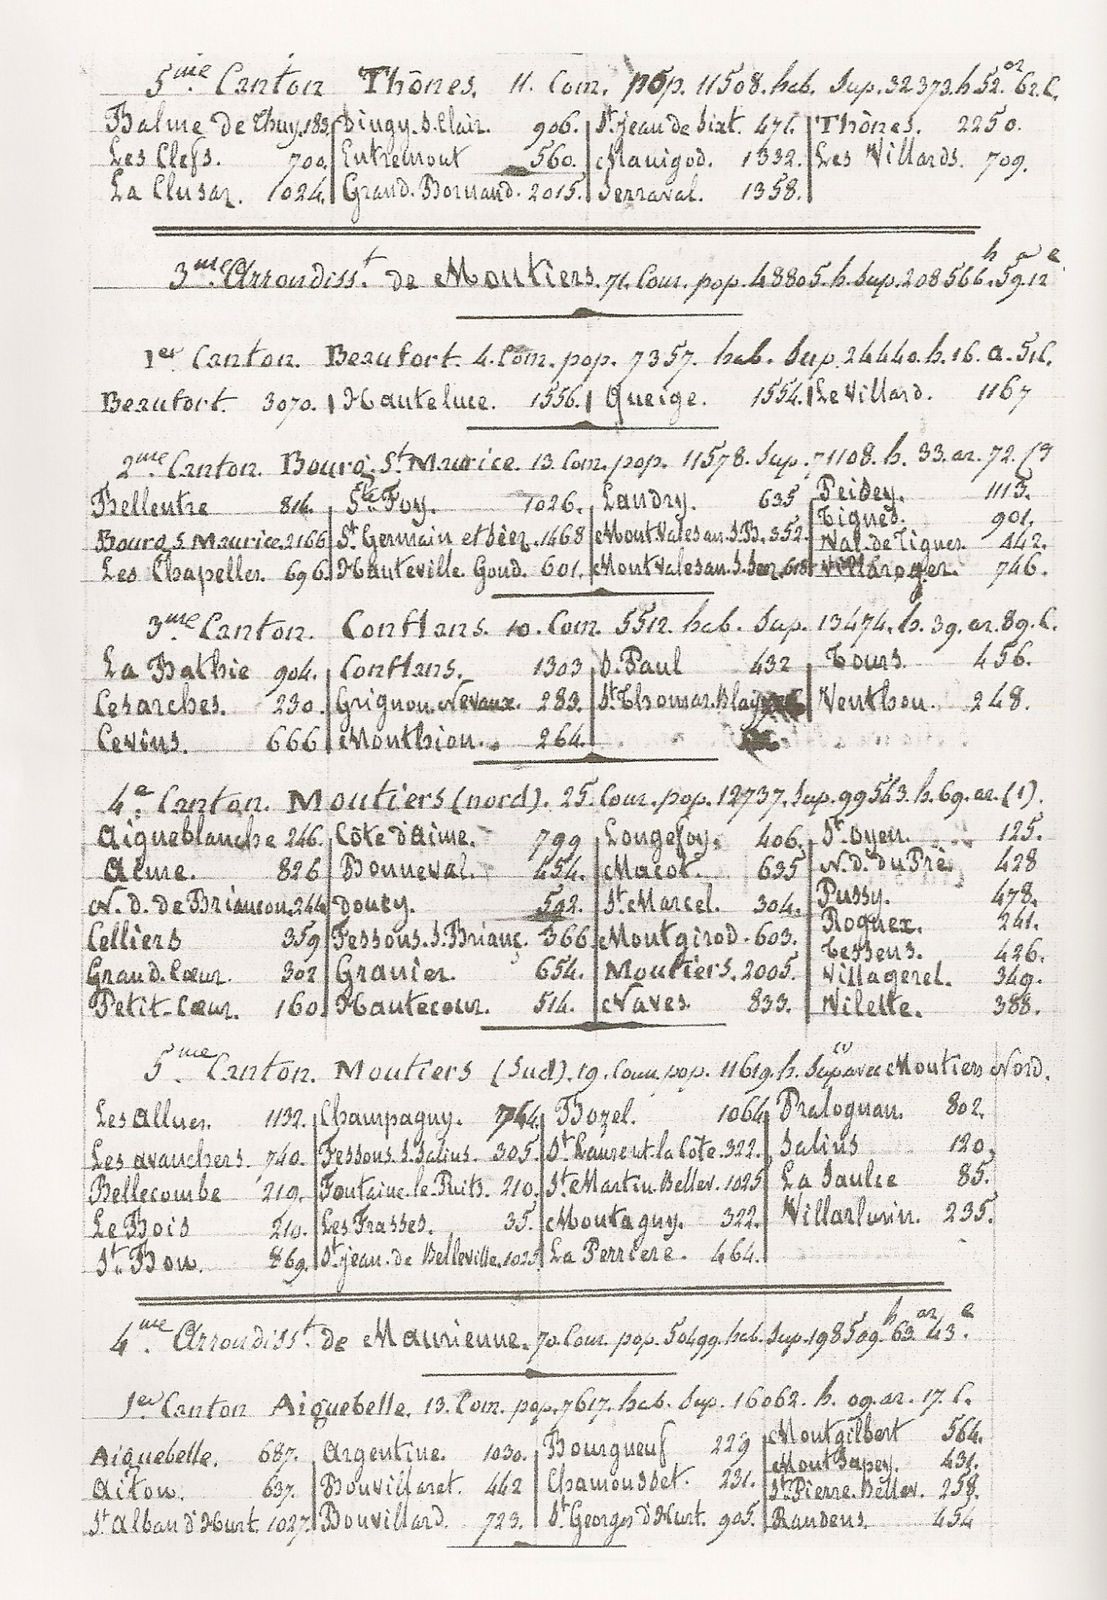 5me Canton Thônes. 11. Com. pop. 11508. hab. Sup. 32373. h. 52. ar 62. C.
Balme de Thuy. 183. Dingy. S. Clair. 906. St. jean de Sixt. 471. Thônes. 2250.
Les Clefs. 700. Entremont 560. Manigod. 1332. Les Villards. 709.
La Clusaz. 1024. Grand. Bornand. 2015. Serraval. 1358.
3me Arrondisst. de Moutiers. 71. Com. pop. 48805. h. Sup. 208566 h. 59. 12
1er Canton. Beaufort. 4. Com. pop. 7357. hab. Sup. 24440. h. 16. a. 51 C.
Beaufort. 3070. Hauteluce. 1556. Queige. 1554. Le Villard. 1167
2me Canton. Bourg. St. Maurice. 13. Com. pop. 11578. Sup. 71108. h. 33. ar. 72. C
Bellentre 814. Ste. Foy. 1026. Landry. 635 Peisey. 1113.
Tignes. 901.
Bourg. S. Maurice. 2166 St. Germain et Séez. 1468 MontValesan. S. B. 352. Val. de Tignes. 442.
Les Chapelles. 696. Hauteville. Gond. 601. MontValesan. S. Séez. 618 Villaroger. 746.
3me Canton. Conflans. 10. Com. 5512. hab. Sup. 13474. h. 39. ar. 89. C.
La Bathie 904. Conflans. 1303 S. Paul 432 Tours. 456.
Cesarches. 230. Grignon. Nevaux. 283. St. Thomas. Venthon. 248.
Cevins. 666 Monthion. 264.
4e Canton. Moutiers (nord). 25. Com. pop. 12737. Sup. 99543. h. 69. ar. (1).
Aigueblanche 246. Côte d'Aime. 799 Longefoy. 406. St. Oyen. 125.
Aime. 826 Bonneval. 454. Macot. 635 N. D. du Pré. 428
Pussy. 478.
N. D. de Briançon. 244 Doucy. 592. St. Marcel. 304. Rognex. 241.
Celliers 359 Fessons. S. Brianç. 366 Montgirod. 603. Tessens. 426.
Grand. Cœur. 302 Granier. 654. Moutiers. 2005. Villagerel. 349.
Petit-Cœur. 160 Hautecour. 514. Naves 833. Vilette. 388.
5me Canton. Moutiers (Sud). 19. Com. pop. 11619. h. Sup (1) avec Moutiers Nord.
Les Allues. 1132. Champagny. 764. Bozel. 1064 Pralognan. 802.
Les avanchers. 740. Fessons. S. Salins. 305. St. Laurent. la Côte. 322. Salins 120.
Bellecombe 219. Fontaine. le. Puits. 210. St. Martin. Bellev. 1025 La Saulce 85.
Le Bois 210. Les Frasses. 35. Montagny. 322. Villarlurin. 235.
St. Bon. 869. St. jean. de Belleville. 1025 La Perriere. 464.
4me Arrondisst. de Maurienne. 70. Com. pop. 50499. hab. Sup. 198509. h 63. ar 43. c
1er Canton Aiguebelle. 13. Com. pop. 7617. hab. Sup. 16062. h. 09. ar. 17. C.
Aiguebelle. 687. Argentine. 1030. Bourgneuf 229 Montgilbert 564.
Mont Sapey. 431.
Aiton. 637. Bonvillaret. 442 Chamousset. 231. St. Pierre. Bellev. 258.
St. Alban d'Hurt. 1027. Bonvillard. 723. St. Georges d'Hurt. 905. Randens. 454